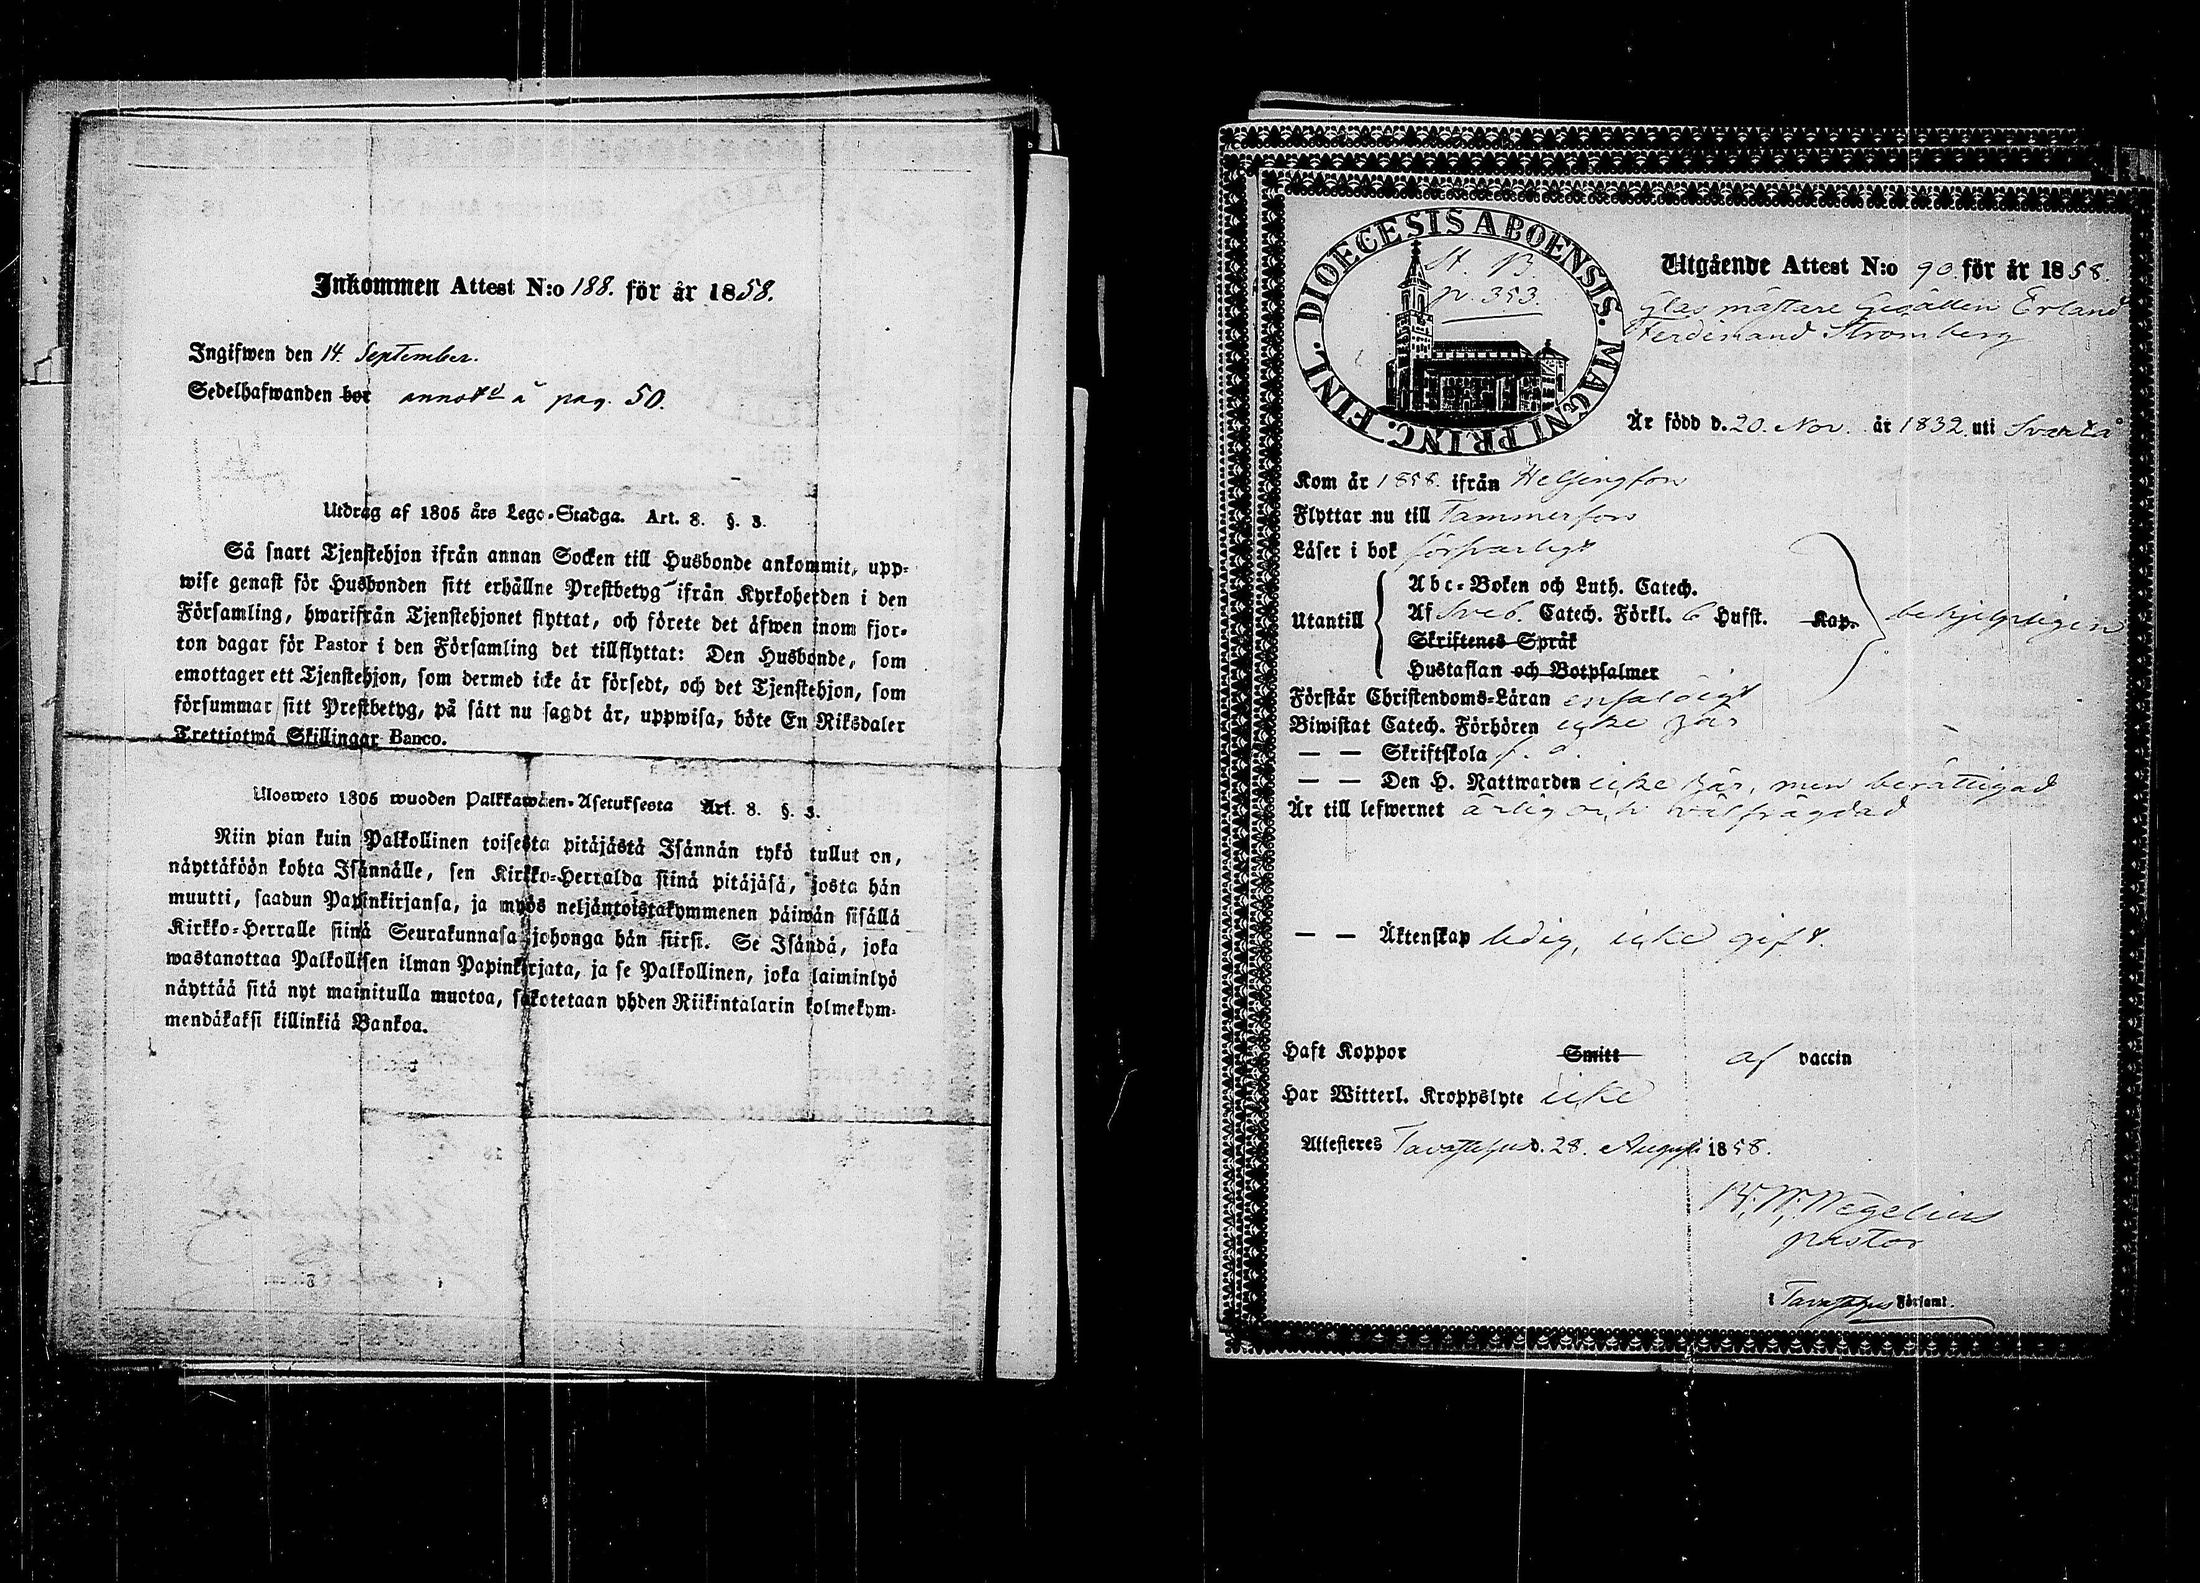 Inkommen Attest N:o 188. för år 1858.
Ingifwen den 14. September.
Sedelhafwanden bor annotd å pag. 50.
Utdrag af 1805 års Lego-Stadga. Art. 8. §. 3.
Så snart Tjenstehjon ifrån annan Socken till Husbonde ankommit, upp-
wise genast för Husbonden sitt erhållne Prestbetyg ifrån Kyrkoherden i den
Församling, hwarifrån Tjenstehjonet flyttat, och förete det äfwen inom fjor-
ton dagar för Pastor i den Församling det tillflyttat: Den Husbonde, som
emottager ett Tjenstehjon, som dermed icke är försedt, och det Tjenstehjon, som
försummar sitt Prestbetyg, på sätt nu sagdt är, uppwisa, böte En Riksdaler
Trettiotwå Skillingar Banco.
Ulosweto 1805 wuoden Palkkawäen-Asetuksesta Art. 8. §. 3.
Niin pian kuin Palkollinen toisesta pitäjästä Isännän tykö tullut on,
näyttäköön kohta Isännälle, sen Kirkko-Herralda siinä pitäjäsä, josta hän
muutti, saadun Papinkirjansa, ja myös neljäntoistakymmenen päiwän sisällä
Kirkko-Herralle siinä Seurakunnasa johonga hän siirsi. Se Isändä, joka
wastanottaa Palkollisen ilman Papinkirjata, ja se Palkollinen, joka laiminlyö
näyttää sitä nyt mainitulla muotoa, sakotetaan yhden Riikintalarin kolmekym-
mendäkaksi killinkiä Bankoa.
DIOECESIS ABOENSIS. MAGNI PRINC. FINL.
St. B.
p. 353.
Utgående Attest N:o 90. för år 1858.
Glasmästare Gesällen Erland
Ferdinand Strömberg
Är född d. 20. Nov. år 1832. uti Svartå
Kom år 1858. ifrån Helsingfors
Flyttar nu till Tammerfors
Läser i bok försvarligt
Utantill
Abc-Boken och Luth. Catech.
Af Sveb. Catech. Förkl. 6 Hufst. Kap. behjelpligen
Skriftenes Språk
Hustaflan och Botpsalmer
Förstår Christendoms-Läran enfaldigt
Biwistat Catech. Förhören icke här
— — Skriftskola f. d.
— — Den H. Nattwarden icke här, men berättigad
Är till lefwernet ärlig och välfrägdad
— — Äktenskap ledig, icke gift.
Haft Koppor Smitt af vaccin
Har Witterl. Kroppslyte icke
Attesteres Tavastehus d. 28. Augusti 1858.
Wegelius
pastor
i Tavastehus Församl.